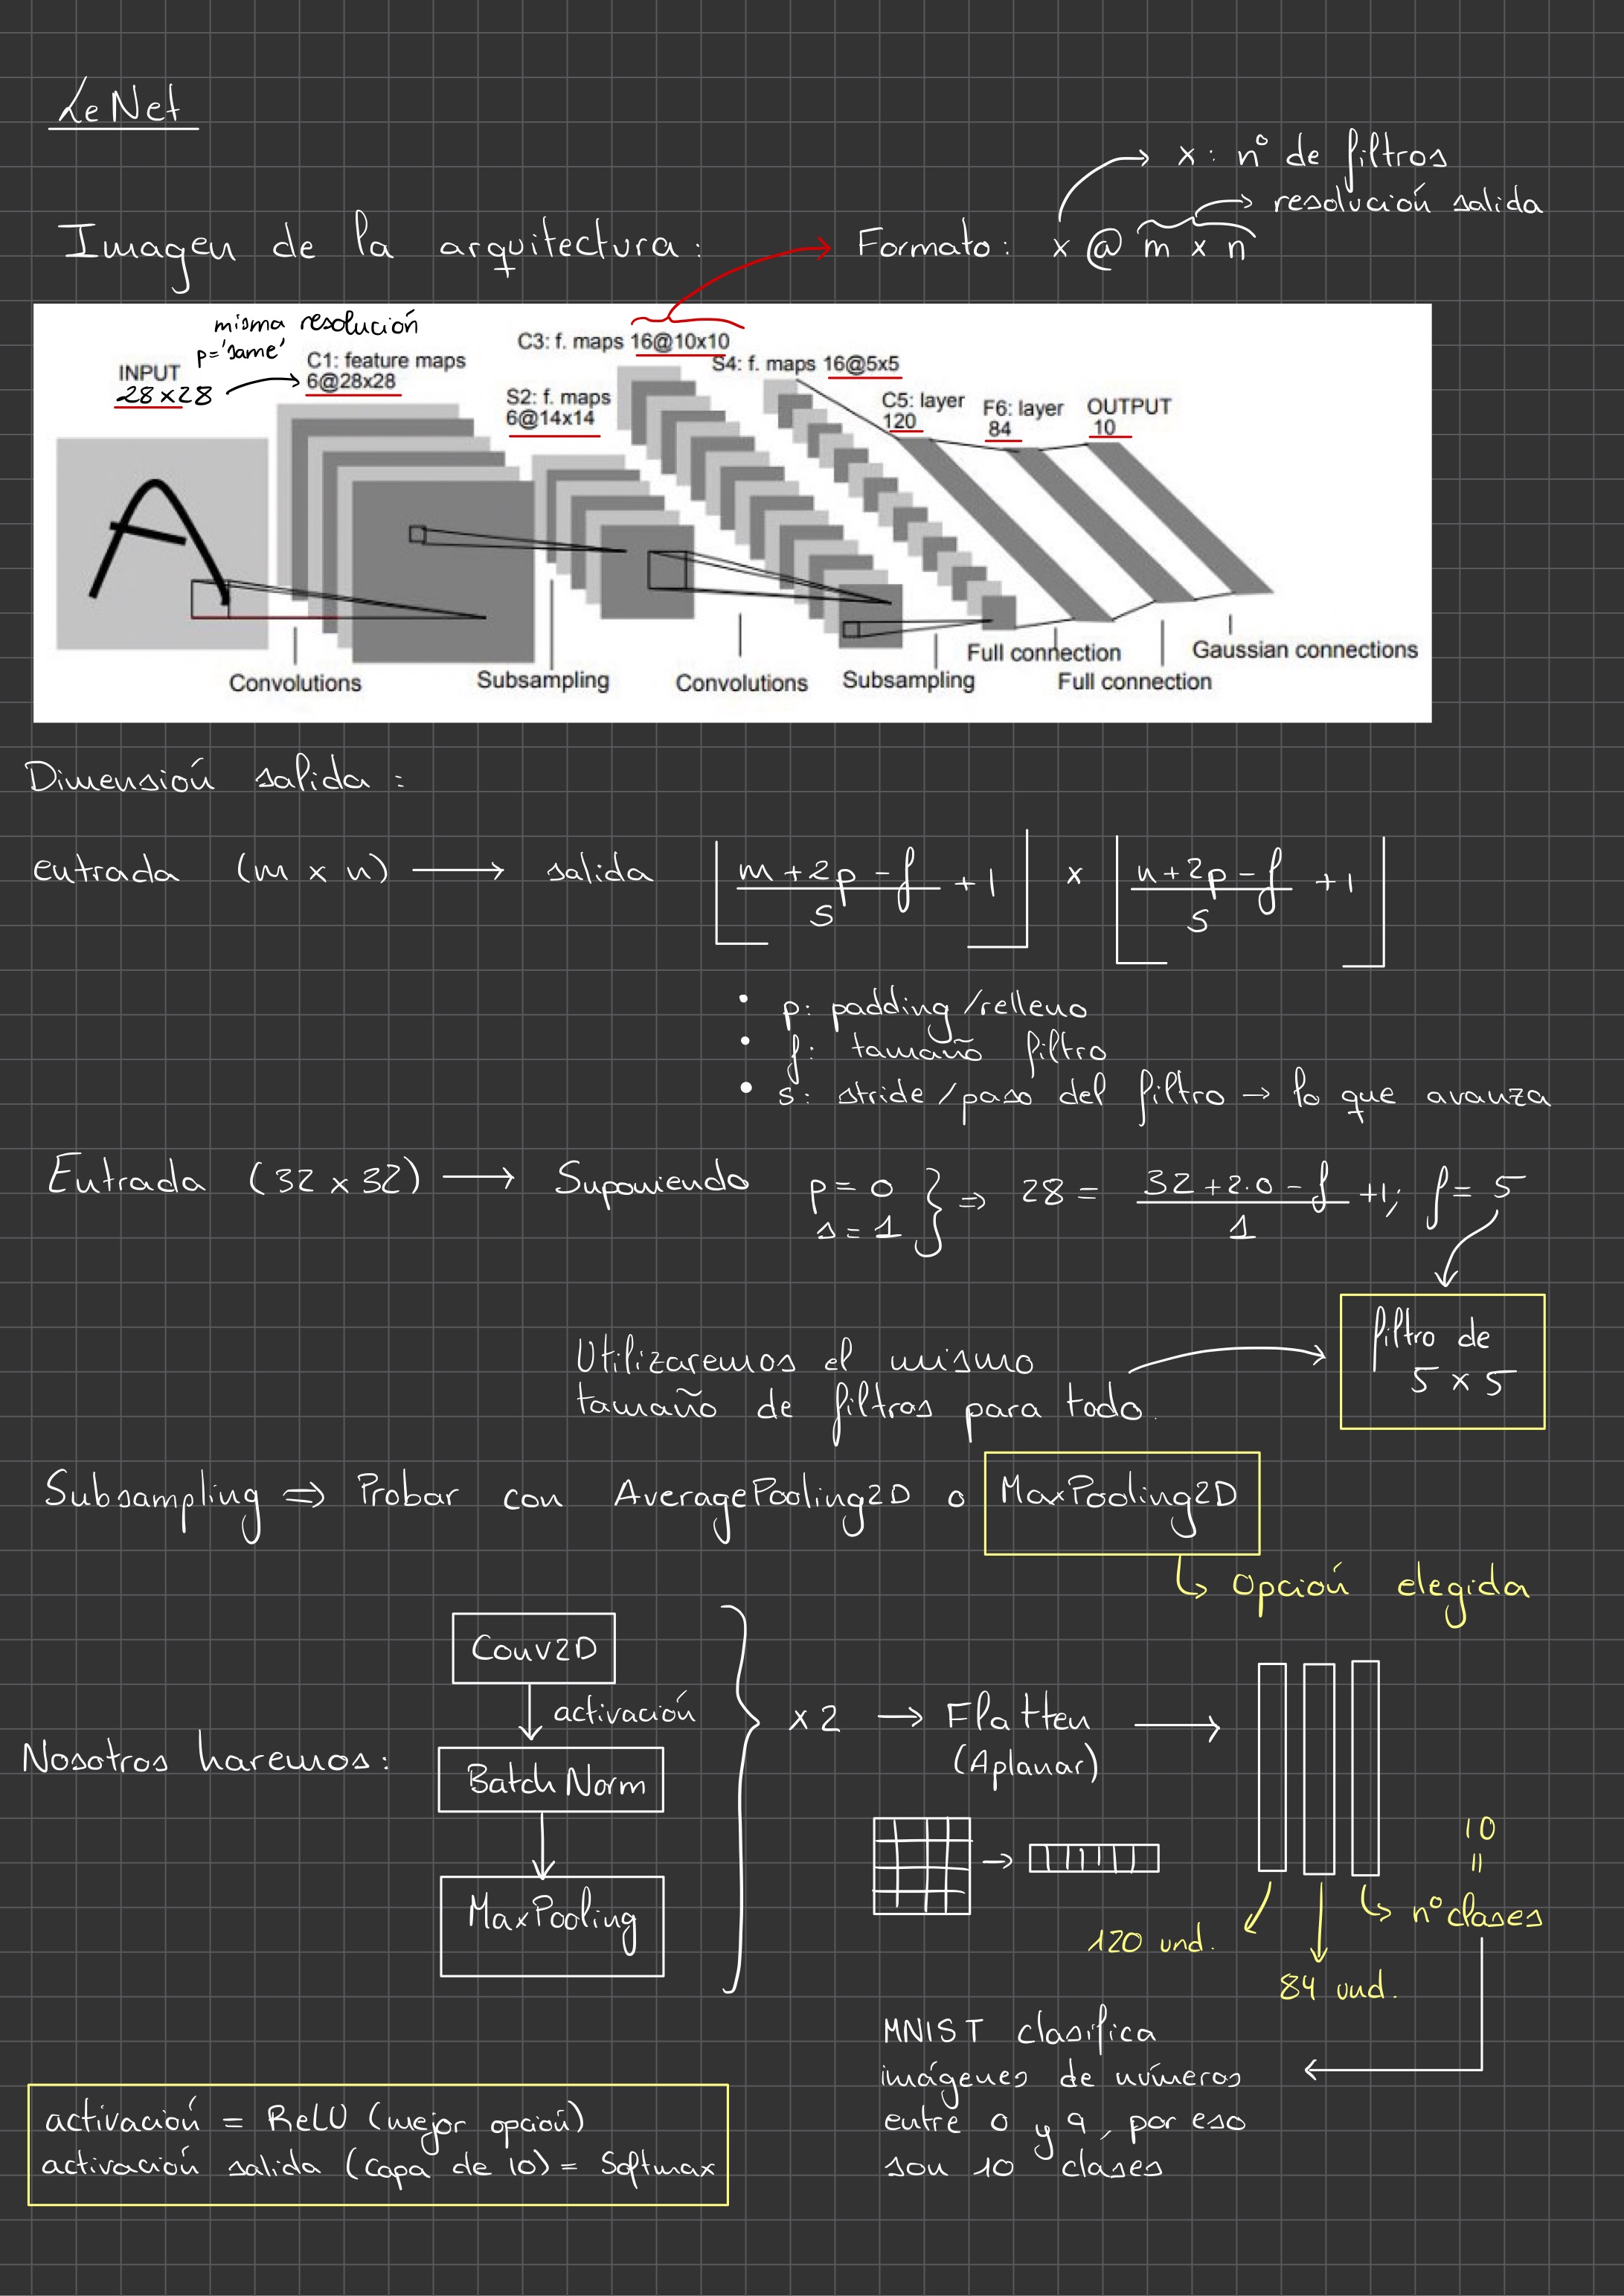 LeNet
x: nº de filtros
resolución salida
Imagen de la arquitectura: Formato: x @ m x n
misma resolución
p='same'
INPUT
28x28
C1: feature maps
6@28x28
S2: f. maps
6@14x14
C3: f. maps 16@10x10
S4: f. maps 16@5x5
C5: layer
120
F6: layer
84
OUTPUT
10
Convolutions
Subsampling
Convolutions
Subsampling
Full connection
Full connection
Gaussian connections
Dimensión salida:
entrada (m x n) → salida ⌊(m+2p-f)/s + 1⌋ x ⌊(n+2p-f)/s + 1⌋
• p: padding/relleno
• f: tamaño filtro
• s: stride/paso del filtro → lo que avanza
Entrada (32 x 32) → Suponiendo p=0 s=1 } ⇒ 28 = (32+2·0-f)/1 +1; f=5
filtro de
5 x 5
Utilizaremos el mismo
tamaño de filtros para todo.
Subsampling ⇒ Probar con AveragePooling2D o MaxPooling2D
↳ Opción elegida
Nosotros haremos:
Conv2D
activación
Batch Norm
MaxPooling
x2 → Flatten →
(Aplanar)
120 und.
84 und.
10
=
nº clases
MNIST clasifica
imágenes de números
entre 0 y 9, por eso
son 10 clases
activación = ReLU (mejor opción)
activación salida (capa de 10) = Softmax